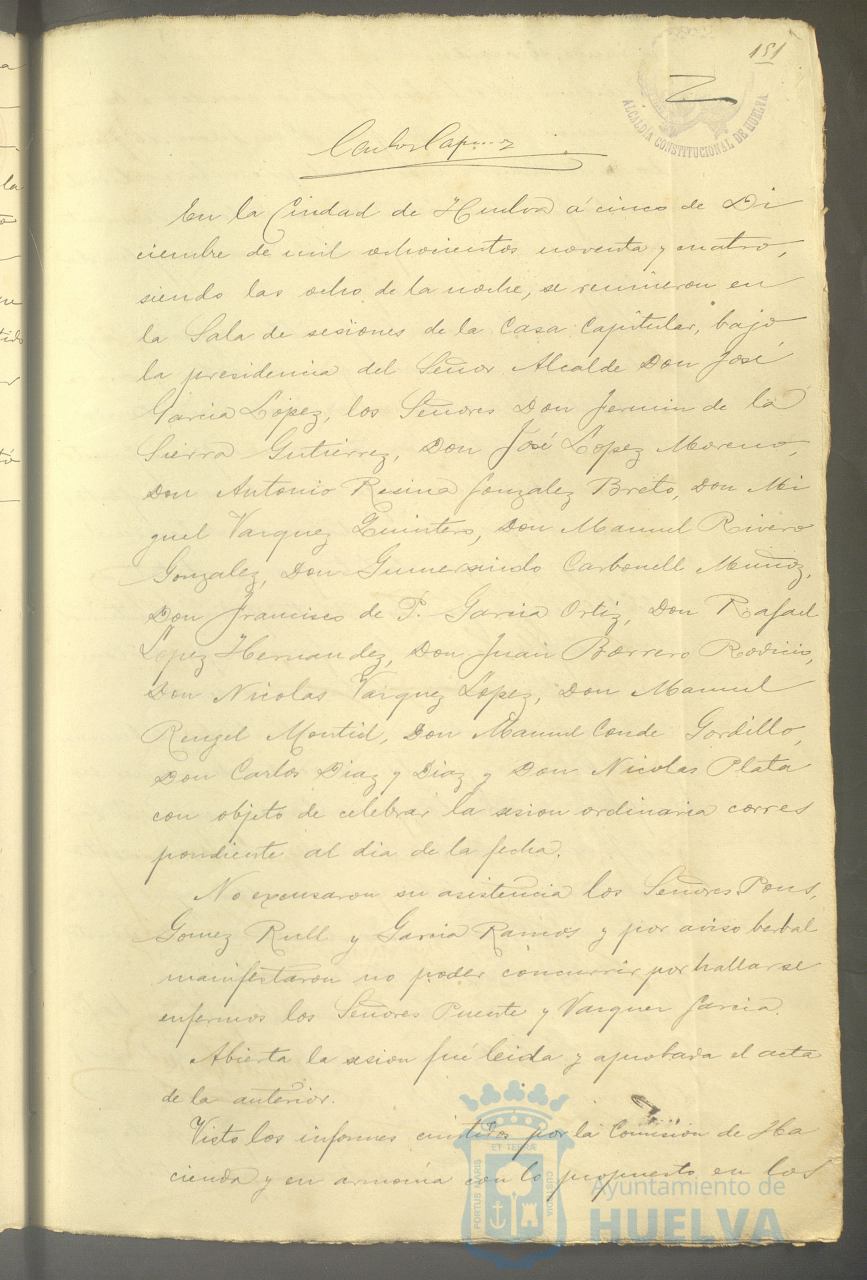 151
ALCALDIA CONSTITUCIONAL DE HUELVA
En la Ciudad de Huelva á cinco de Di
ciembre de mil ochocientos noventa y cuatro,
siendo las ocho de la noche, se reunieron en
la Sala de sesiones de la Casa Capitular, bajo
la presidencia del Señor Alcalde Don José
Garcia López, los Señores Don Fermin de la
Sierra Gutierrez, Don José Lopez Moreno,
Don Antonio Resina Gonzalez Breto, Don Mi
guel Vazquez Quintero, Don Manuel Rivero
Gonzalez, Don Gumersindo Carbonell Muñoz,
Don Francisco de P. Garcia Ortiz, Don Rafael
Lopez Hernandez, Don Juan Borrero Rodicio,
Don Nicolas Vazquez Lopez, Don Manuel
Rengel Montiel, Don Manuel Conde Gordillo,
Don Carlos Diaz y Diaz y Don Nicolas Plata
con objeto de celebrar la sesion ordinaria corres
pondiente al dia de la fecha.
No excusaron su asistencia los Señores Pons,
Gomez Rull y Garcia Ramos y por aviso berbal
manifestaron no poder concurrir por hallarse
enfermos los Señores Puente y Vazquez Garcia.
Abierta la sesion fué leida y aprobada el acta
de la anterior.
Visto los informes emitidos por la Comisión de Ha
cienda y en armonia con lo propuesto en los
PORTUS MARIS ET TERRÆ CUSTODIA
Ayuntamiento de
HUELVA